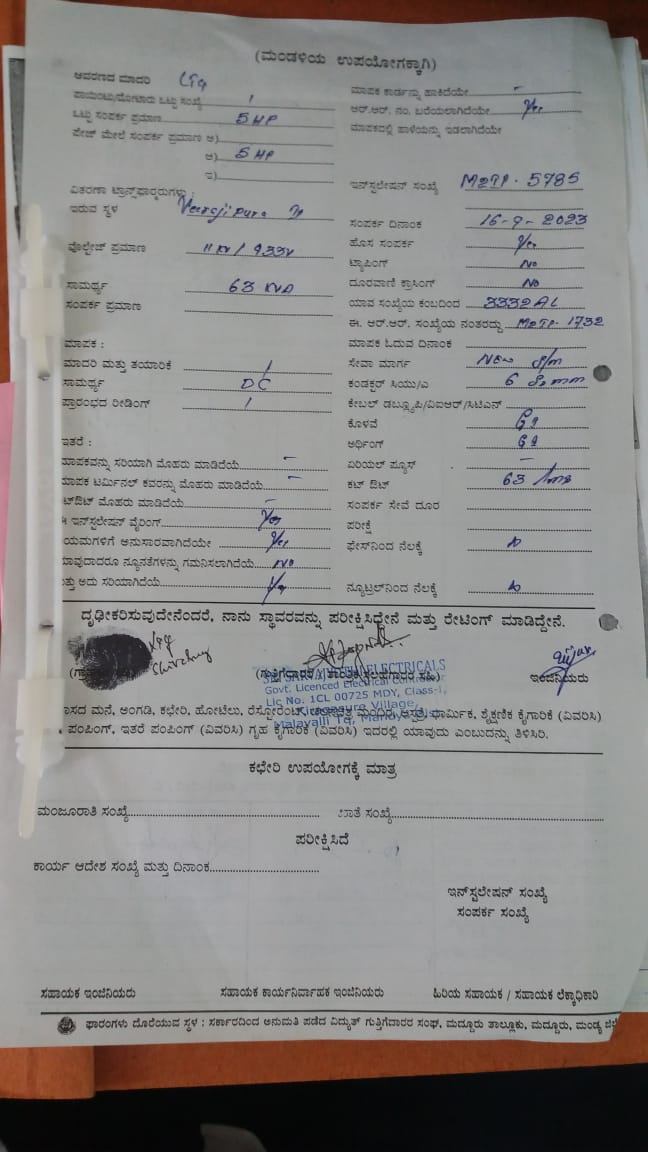 (ಮಂಡಳಿಯ ಉಪಯೋಗಕ್ಕಾಗಿ)
ಆವರಣದ ಮಾದರಿ
ಮಾಪಕ ಕಾರ್ಡನ್ನು ಹಾಕಿದೆಯೇ -
ಒಟ್ಟು ಸಂಖ್ಯೆ 1
ಆರ್.ಆರ್. ನಂ. ಬರೆಯಲಾಗಿದೆಯೇ Yes
ಒಟ್ಟು ಸಂಪರ್ಕ ಪ್ರಮಾಣ 5 HP
ಮಾಪಕದಲ್ಲಿ ಹಾಳೆಯನ್ನು ಇಡಲಾಗಿದೆಯೇ
ಪೇಜ್ ಮೇಲೆ ಸಂಪರ್ಕ ಪ್ರಮಾಣ ಅ)
ಆ) 5 HP
ಇ)
ಇನ್‌ಸ್ಟಲೇಷನ್ ಸಂಖ್ಯೆ M2TP. 5785
ವಿತರಣಾ ಟ್ರಾನ್ಸ್‌ಫಾರ್ಮರುಗಳು :
ಇರುವ ಸ್ಥಳ
ಸಂಪರ್ಕ ದಿನಾಂಕ 16-9-2023
ವೋಲ್ಟೇಜ್ ಪ್ರಮಾಣ 11 KV /
ಹೊಸ ಸಂಪರ್ಕ Yes
ಟ್ಯಾಪಿಂಗ್ No
ಸಾಮರ್ಥ್ಯ 63 KVA
ದೂರವಾಣಿ ಕ್ರಾಸಿಂಗ್ No
ಸಂಪರ್ಕ ಪ್ರಮಾಣ
ಯಾವ ಸಂಖ್ಯೆಯ ಕಂಬದಿಂದ
ಈ. ಆರ್.ಆರ್. ಸಂಖ್ಯೆಯ ನಂತರದ್ದು M2TP. 1732
ಮಾಪಕ :
ಮಾಪಕ ಓದುವ ದಿನಾಂಕ
ಮಾದರಿ ಮತ್ತು ತಯಾರಿಕೆ /
ಸೇವಾ ಮಾರ್ಗ New
ಸಾಮರ್ಥ್ಯ DC
ಕಂಡಕ್ಟರ್ ಸಿಯು/ಎ 6
ಪ್ರಾರಂಭದ ರೀಡಿಂಗ್ /
ಕೇಬಲ್ ಡಬ್ಲ್ಯೂಪಿ/ವಿಐಆರ್/ಸಿಟಿಎಸ್
ಕೊಳವೆ GI
ಇತರೆ :
ಅರ್ಥಿಂಗ್ GI
ಮಾಪಕವನ್ನು ಸರಿಯಾಗಿ ಮೊಹರು ಮಾಡಿದೆಯೆ -
ಏರಿಯಲ್ ಫ್ಯೂಸ್ -
ಮಾಪಕ ಟರ್ಮಿನಲ್ ಕವರನ್ನು ಮೊಹರು ಮಾಡಿದೆಯೆ -
ಕಟ್ ಔಟ್ 63
ಮೊಹರು ಮಾಡಿದೆಯೆ -
ಸಂಪರ್ಕ ಸೇವೆ ದೂರ
ಇನ್‌ಸ್ಟಲೇಷನ್ ವೈರಿಂಗ್ Yes
ಪರೀಕ್ಷೆ
ಯಮಗಳಿಗೆ ಅನುಸಾರವಾಗಿದೆಯೇ Yes
ಫೇಸ್‌ನಿಂದ ನೆಲಕ್ಕೆ
ಯಾವುದಾದರೂ ನ್ಯೂನತೆಗಳನ್ನು ಗಮನಿಸಲಾಗಿದೆಯೆ No
ತ್ತು ಅದು ಸರಿಯಾಗಿದೆಯೆ Yes
ನ್ಯೂಟ್ರಲ್‌ನಿಂದ ನೆಲಕ್ಕೆ
ದೃಢೀಕರಿಸುವುದೇನೆಂದರೆ, ನಾನು ಸ್ಥಾವರವನ್ನು ಪರೀಕ್ಷಿಸಿದ್ದೇನೆ ಮತ್ತು ರೇಟಿಂಗ್ ಮಾಡಿದ್ದೇನೆ.
ಇಂಜಿನಿಯರು
ELECTRICALS
Govt. Licenced Electrical Contractor
Lic No. 1CL 00725 MDY, Class-I,
Village,
Malavalli Tq, Mandya
ಾಸದ ಮನೆ, ಅಂಗಡಿ, ಕಛೇರಿ, ಹೋಟೆಲು, ರೆಸ್ಟೋರೆಂಟ್, ಆಸ್ಪತ್ರೆ, ಧಾರ್ಮಿಕ, ಶೈಕ್ಷಣಿಕ ಕೈಗಾರಿಕೆ (ವಿವರಿಸಿ)
ಪಂಪಿಂಗ್, ಇತರೆ ಪಂಪಿಂಗ್ (ವಿವರಿಸಿ) ಗೃಹ ಕೈಗಾರಿಕೆ (ವಿವರಿಸಿ) ಇದರಲ್ಲಿ ಯಾವುದು ಎಂಬುದನ್ನು ತಿಳಿಸಿರಿ.
ಕಛೇರಿ ಉಪಯೋಗಕ್ಕೆ ಮಾತ್ರ
ಮಂಜೂರಾತಿ ಸಂಖ್ಯೆ
ಖಾತೆ ಸಂಖ್ಯೆ
ಪರೀಕ್ಷಿಸಿದೆ
ಕಾರ್ಯ ಆದೇಶ ಸಂಖ್ಯೆ ಮತ್ತು ದಿನಾಂಕ
ಇನ್‌ಸ್ಟಲೇಷನ್ ಸಂಖ್ಯೆ
ಸಂಪರ್ಕ ಸಂಖ್ಯೆ
ಸಹಾಯಕ ಇಂಜಿನಿಯರು
ಸಹಾಯಕ ಕಾರ್ಯನಿರ್ವಾಹಕ ಇಂಜಿನಿಯರು
ಹಿರಿಯ ಸಹಾಯಕ / ಸಹಾಯಕ ಲೆಕ್ಕಾಧಿಕಾರಿ
ಫಾರಂಗಳು ದೊರೆಯುವ ಸ್ಥಳ : ಸರ್ಕಾರದಿಂದ ಅನುಮತಿ ಪಡೆದ ವಿದ್ಯುತ್ ಗುತ್ತಿಗೆದಾರರ ಸಂಘ, ಮದ್ದೂರು ತಾಲ್ಲೂಕು, ಮದ್ದೂರು, ಮಂಡ್ಯ